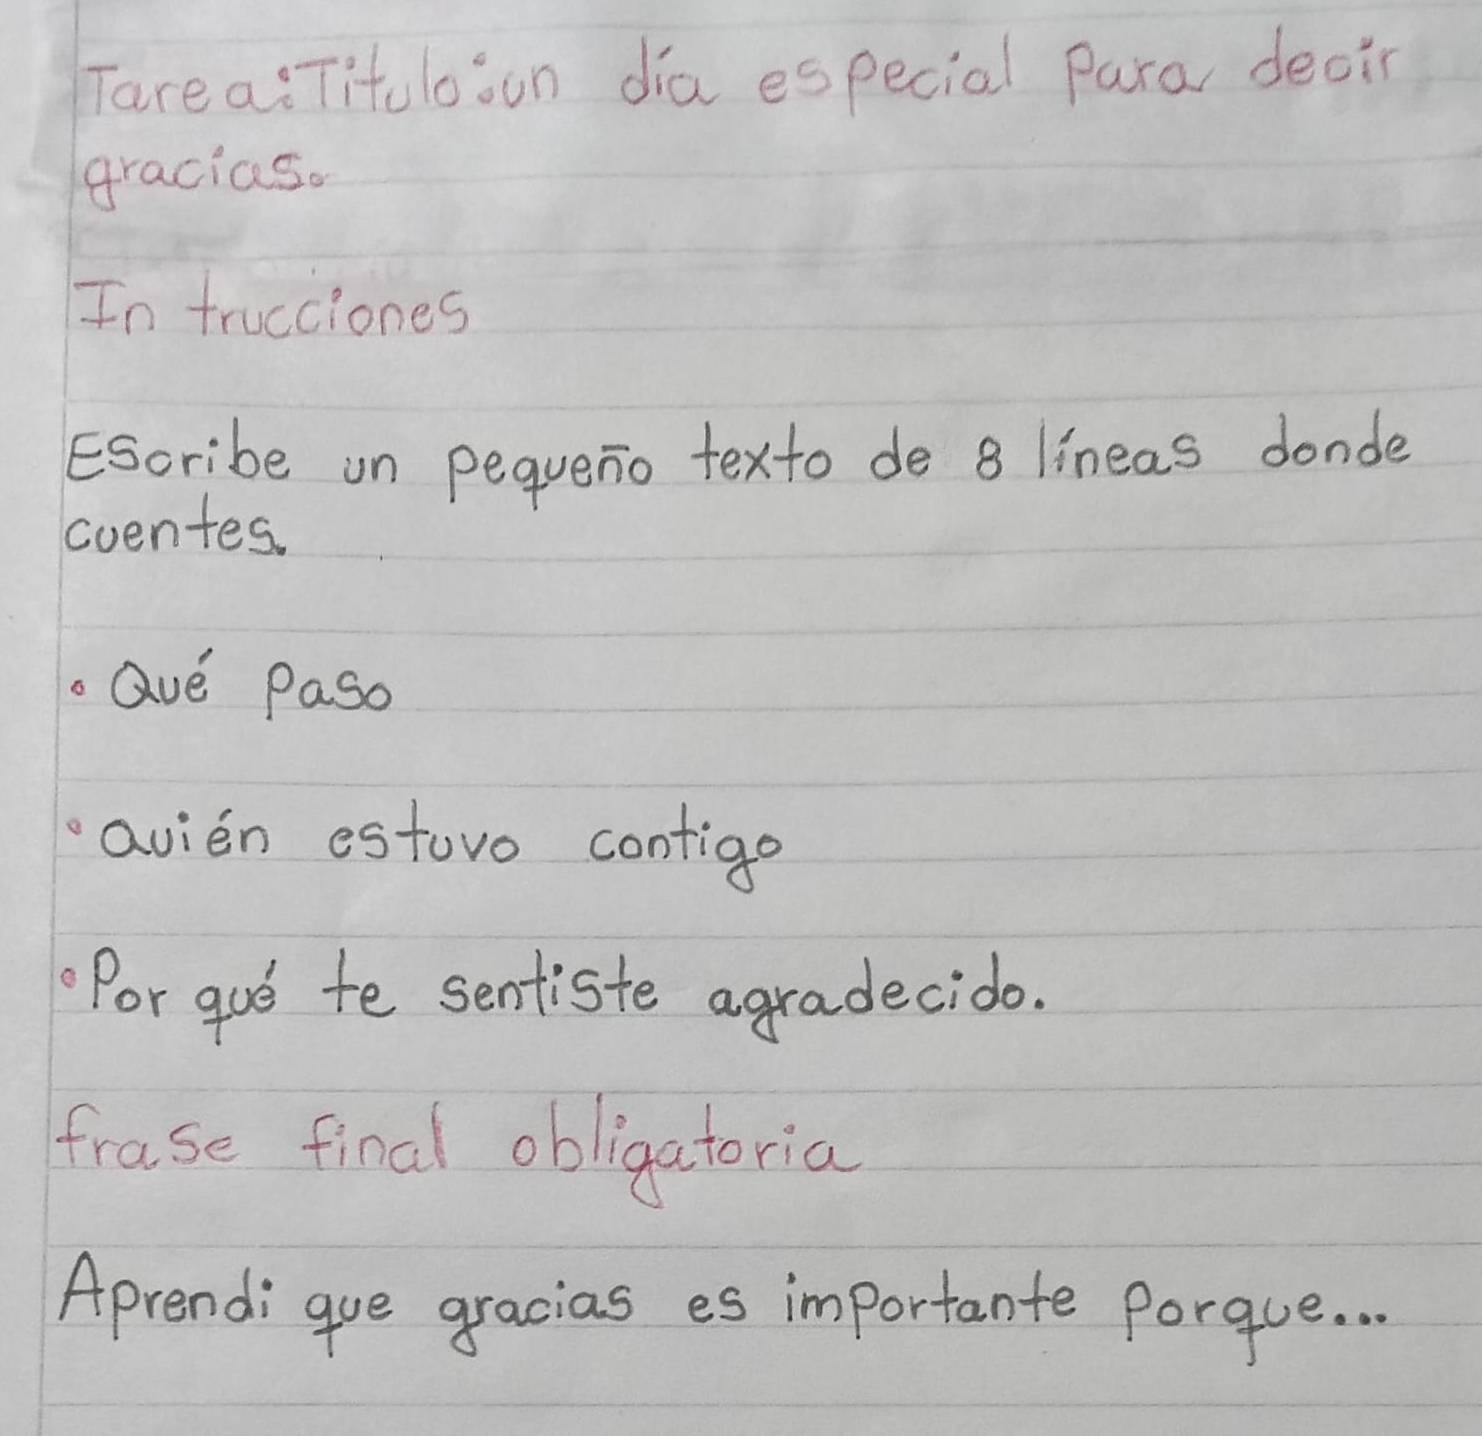 Tarea: Titulo: un día especial Para decir
gracias.
In trucciones
Escribe un pequeño texto de 8 líneas donde
cuentes.
• Qué Paso
• Quién estuvo contigo
• Por qué te sentiste agradecido.
frase final obligatoria
Aprendi que gracias es importante Porque...